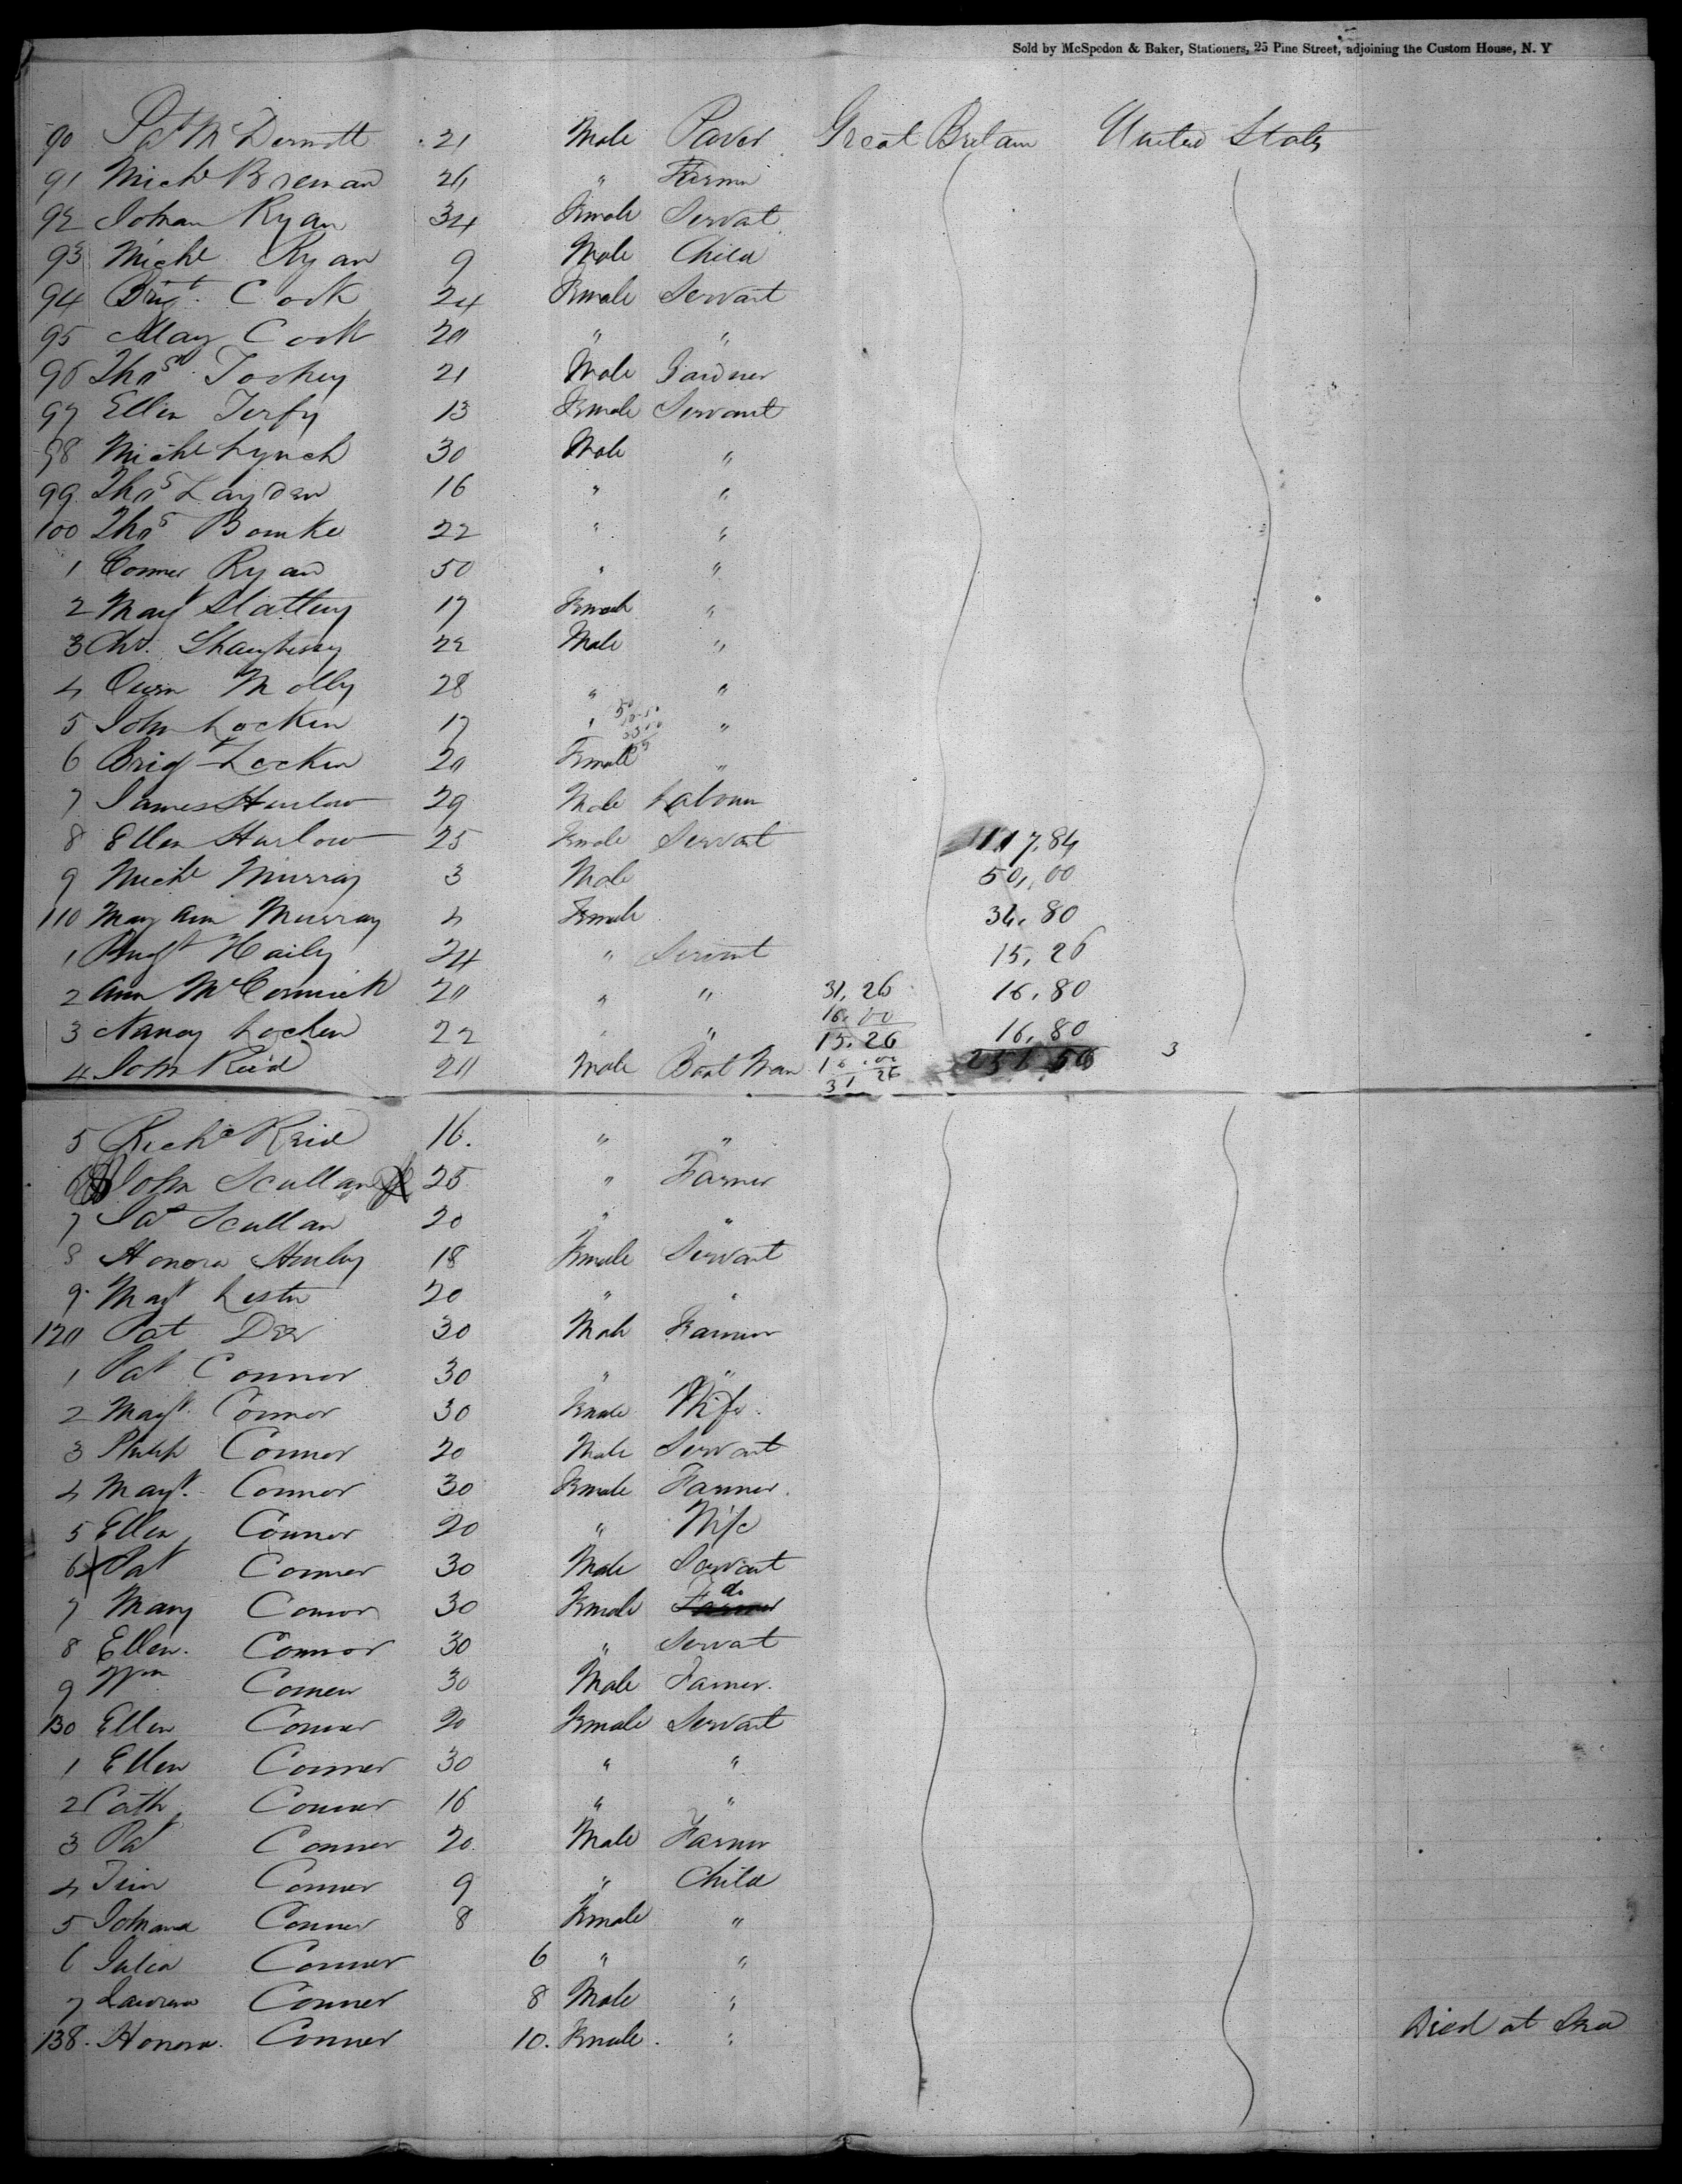 Sold by McSpedon & Baker, Stationers, 25 Pine Street, adjoining the Custom House, N. Y
90 Pat McDermott 21 Male Paver Great Britain United States
91 Michl Brenan 26 " Farmer
92 Johan Ryan 34 Female Servat
93 Michl Ryan 9 Male Child
94 Brigt. Cook 24 Female Servant
95 Mary Cook 20 " "
96 Thos Male Gardner 21
97 Ellen 13 Female Servant
98 Michl Lynch 30 Male "
99 Thos Layden 16 " "
100 Thos Bourke 22 " "
1 Conner Ryan 50 " "
2 Magt Slattery 17 Female "
3 Shaughnessy 22 Male "
4 Owen Molly 28 " "
5 John Locken 17 " "
6 Brigt Locken 20 Female "
7 James Hurlow 29 Male Labourer
8 Ellen Hurlow 25 Female Servant 117,84
9 Michl Murray 3 Male 50,00
110 Mary Ann Murray 4 Female 34,80
1 Brigt Haily 24 " Servant 15,26
2 Ann McCormick 20 " " 31,26 16,80
3 Nancy Locken 22 " " 16,00 16,80
15,26
4 John Reid 20 Male Boat Man 16.00 251 50 3
31 26
5 Richd Reid 16. " "
6 John Scullan 25 " Farmer
7 Scullan 20 " "
8 Honora Hurley 18 Female Servant
9 Magt Lester 20 " "
120 Pat 30 Male Farmer
1 Pat Connor 30 " "
2 Magt. Connor 30 Female Wife
3 Philip Connor 20 Male Servant
4 Magt. Connor 30 Female Farmer
5 Ellen Connor 20 " Wife
6 Pat Conner 30 Male Servant
7 Mary Connor 30 Female Farmer do
8 Ellen. Connor 30 " Servant
9 Wm Conner 30 Male Farmer.
130 Ellen Conner 20 Female Servant
1 Ellen Conner 30 " "
2 Cath Conner 16 " "
3 Pat Conner 20 Male Farmer
4 Tim Conner 9 " Child
5 Johana Conner 8 Female "
6 Julia Conner 6 " "
7 Lawrence Conner 8 Male "
138. Honora. Conner 10. Female. " Died at Sea